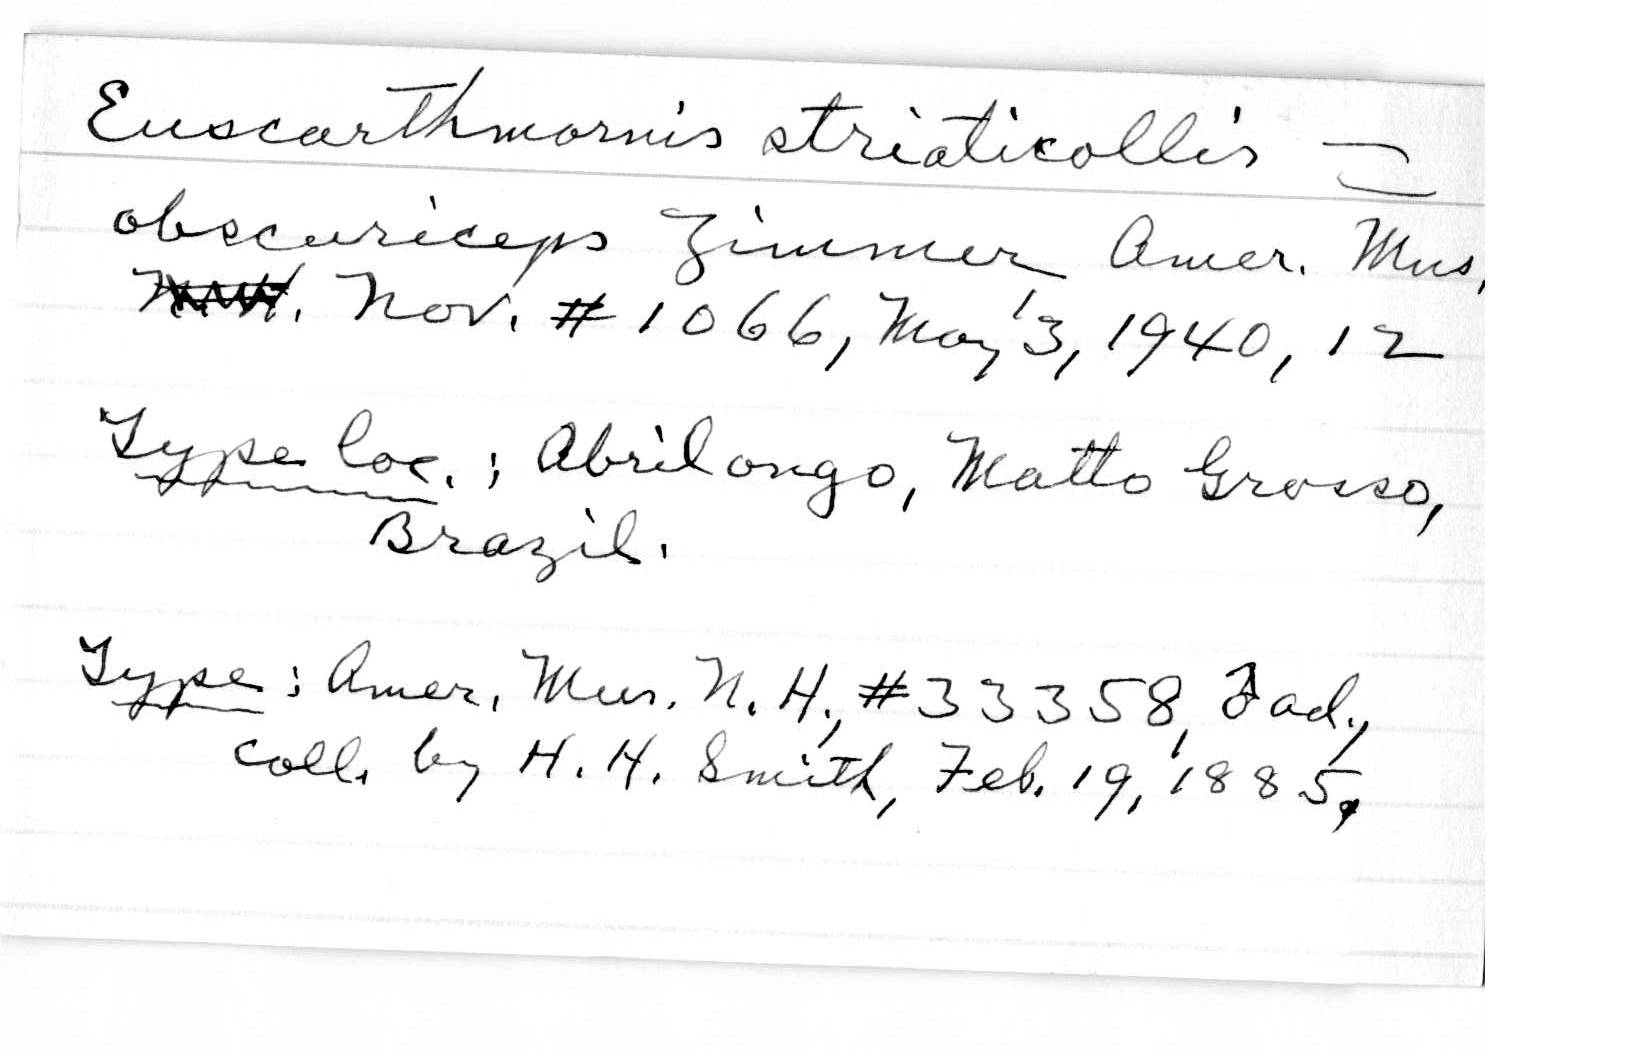 Euscarthmornis striaticollis =
obscuriceps Zimmer Amer. Mus.
Nov. #1066, May 13, 1940, 12
Type loc.; Abrilongo, Matto Grosso,
Brazil.
Type: Amer. Mus. N. H., #33358, ad.,
coll. by H. H. Smith, Feb. 19, 1885,